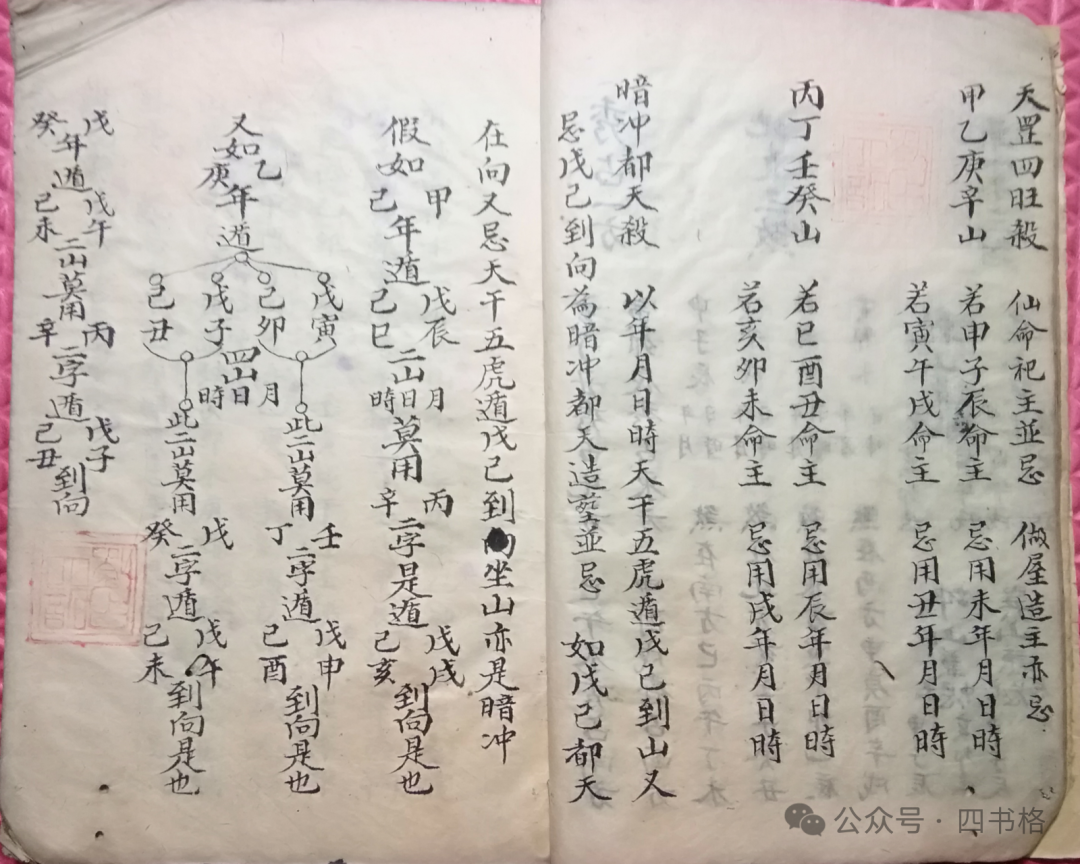 天罡四旺殺 仙命祀主並忌 做屋造主亦忌
甲乙庚辛山 若申子辰命主 忌用未年月日時
若寅午戌命主 忌用丑年月日時
丙丁壬癸山 若巳酉丑命主 忌用辰年月日時
若亥卯未命主 忌用戌年月日時
暗冲都天殺 以年月日時天干五虎遁戊己到山又
忌戊己到向為暗冲都天造塟並忌 如戊己都天
在向又忌天干五虎遁戊己到向坐山亦是暗冲
假如甲己年遁戊辰己巳二山月日時莫用丙辛二字是遁戊戌己亥到向是也
又如乙庚年遁戊寅己卯戊子己丑四山月日時
此二山莫用壬丁二字遁戊申己酉到向是也
此二山莫用戊癸二字遁戊午己未到向是也
戊癸年遁戊午己未二山莫用丙辛二字遁戊子己丑到向
公众号·四书格